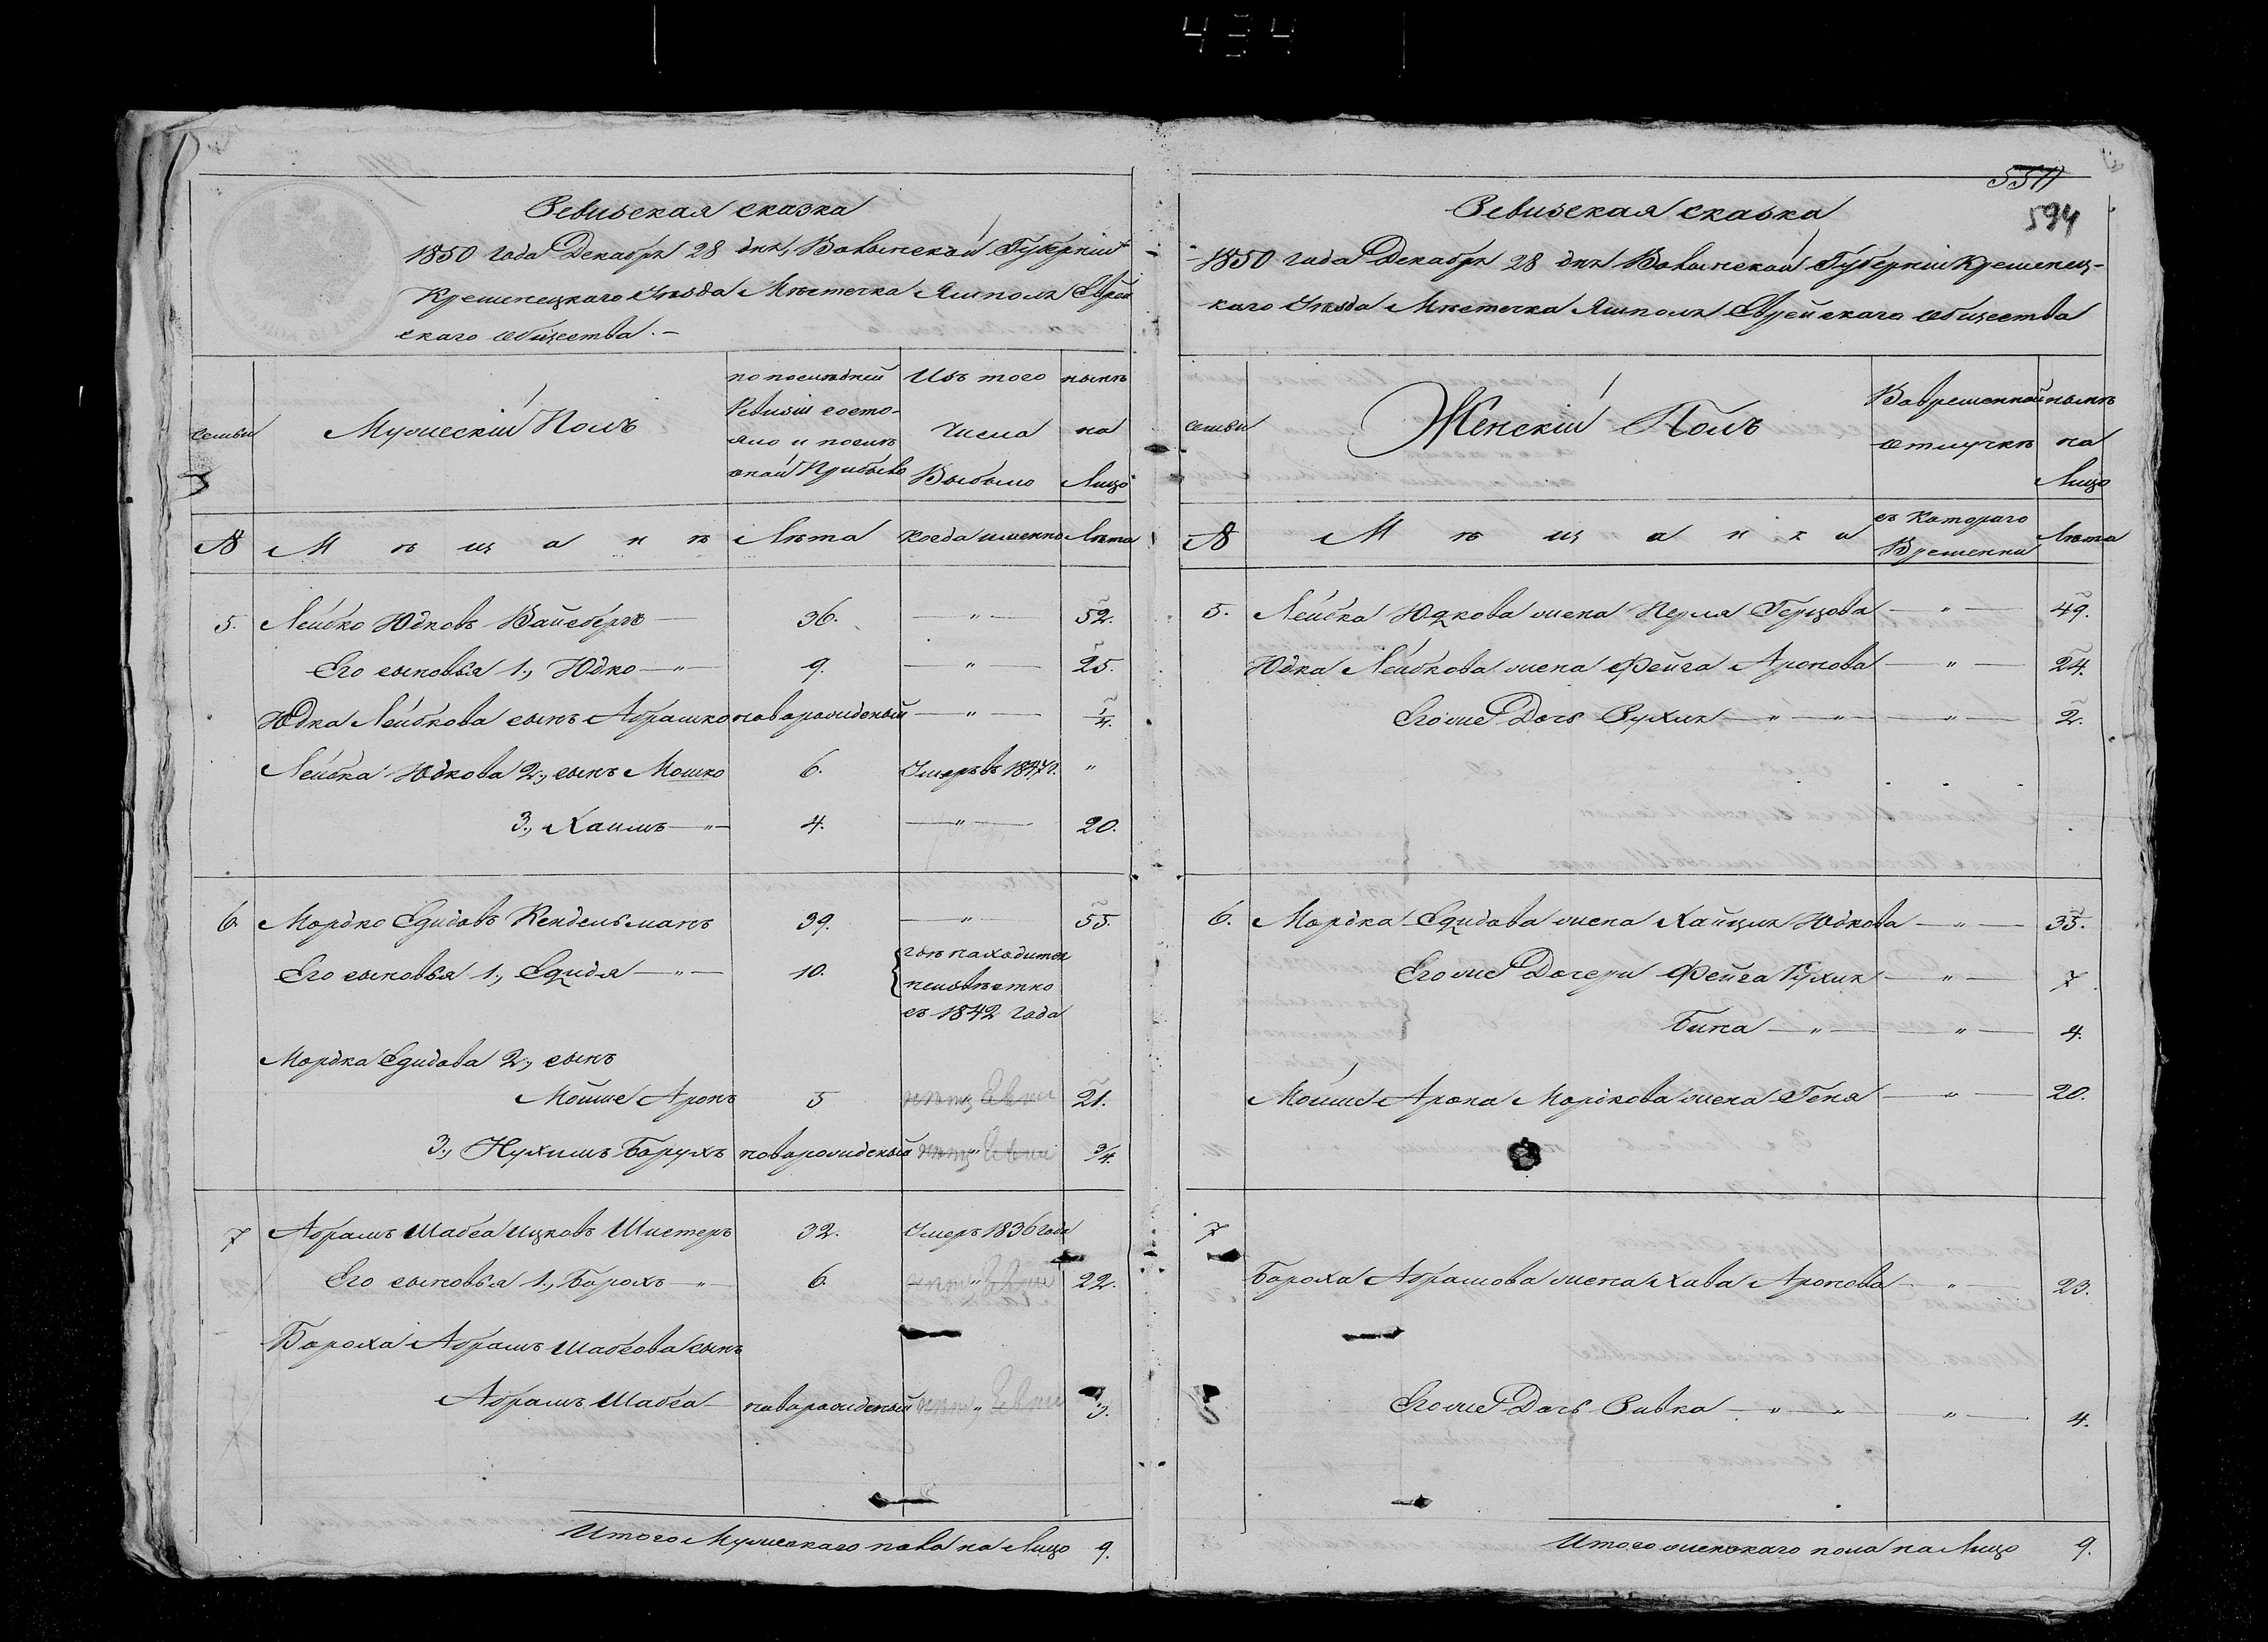 434
Ревизская сказка
1850 года Декабря 28 дня, Волынской Губерніи
Кременецкаго Уѣзда Мѣстечка Ямполя Еврей
скаго общества. –
семьи
Мужескій Полъ
по послѣдней
Ревизіи состо-
яло и послѣ
оной Прибыло
Изъ того
Числа
Выбыло
нынѣ
на
Лицо
№
Мѣщанѣ
Лѣта
Когда именно
Лѣта
5. Лейбко Юдковъ Вайсбергъ — 36. — " — 52.
Его сыновья 1., Юдко — " — 9. — " — 25.
Юдка Лейбкова сынъ Абрашко новорожденый — " — 1/4.
Лейбка Юдкова 2., сынъ Мошко 6. Умеръ въ 1847 г. "
3., Хаимъ — " — 4. — " — 20.
6. Мордко Едидовъ Кендельманъ 39. — " — 55.
Его сыновья 1., Едидя — " — 10. гдѣ находится
неизвѣстно
съ 1842 года
Мордка Едидова 2., сынъ
Мойше Аронъ 5 21.
3., Нухимъ Барухъ новорожденый " 3/4.
7 Абрамъ Шабса Ицковъ Шистеръ 32. Умеръ 1836 года
Его сыновья 1., Борохъ — " — 6. " 22.
Бороха Абрамъ Шабсова сынъ
Абрамъ Шабса — новорожденый " 3.
Итого Мужескаго пола на Лицо 9.
5511
594
Ревизская сказка
1850 года Декабря 28 дня Волынской Губерніи Кременец-
каго Уѣзда Мѣстечка Ямполя Еврейскаго общества
семьи
Женскій Полъ
Во временной
отлучкѣ
нынѣ
на
Лицо
№
Мѣщанки
съ Котораго
Времени
Лѣта
5. Лейбка Юдкова жена Перля Герцова — " — 49.
Юдка Лейбкова жена Фейга Аронова — " — 24.
Его же Дочь Рухля — " — " — " — 2.
6. Мордка Едидова жена Хайция Юдкова — " — 35.
Его же Дочери Фейга Рухля — " — 7
Бина — " — " — 4.
Мойше Арона Мордкова жена Геня — " — 20.
7
Бороха Абрамова жена Хава Аронова " 23.
Его же Дочь Ривка — " — " — " — 4.
Итого женскаго пола на Лицо 9.